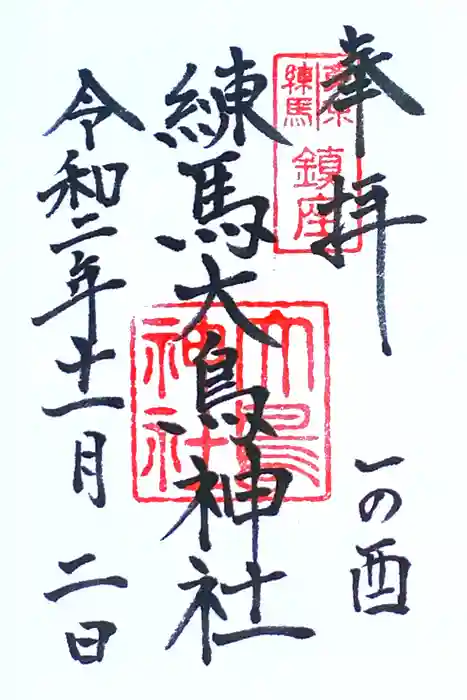 奉拝
一の酉
東京
練馬
鎮座
練馬大鳥神社
大鳥
神社
令和二年十一月二日